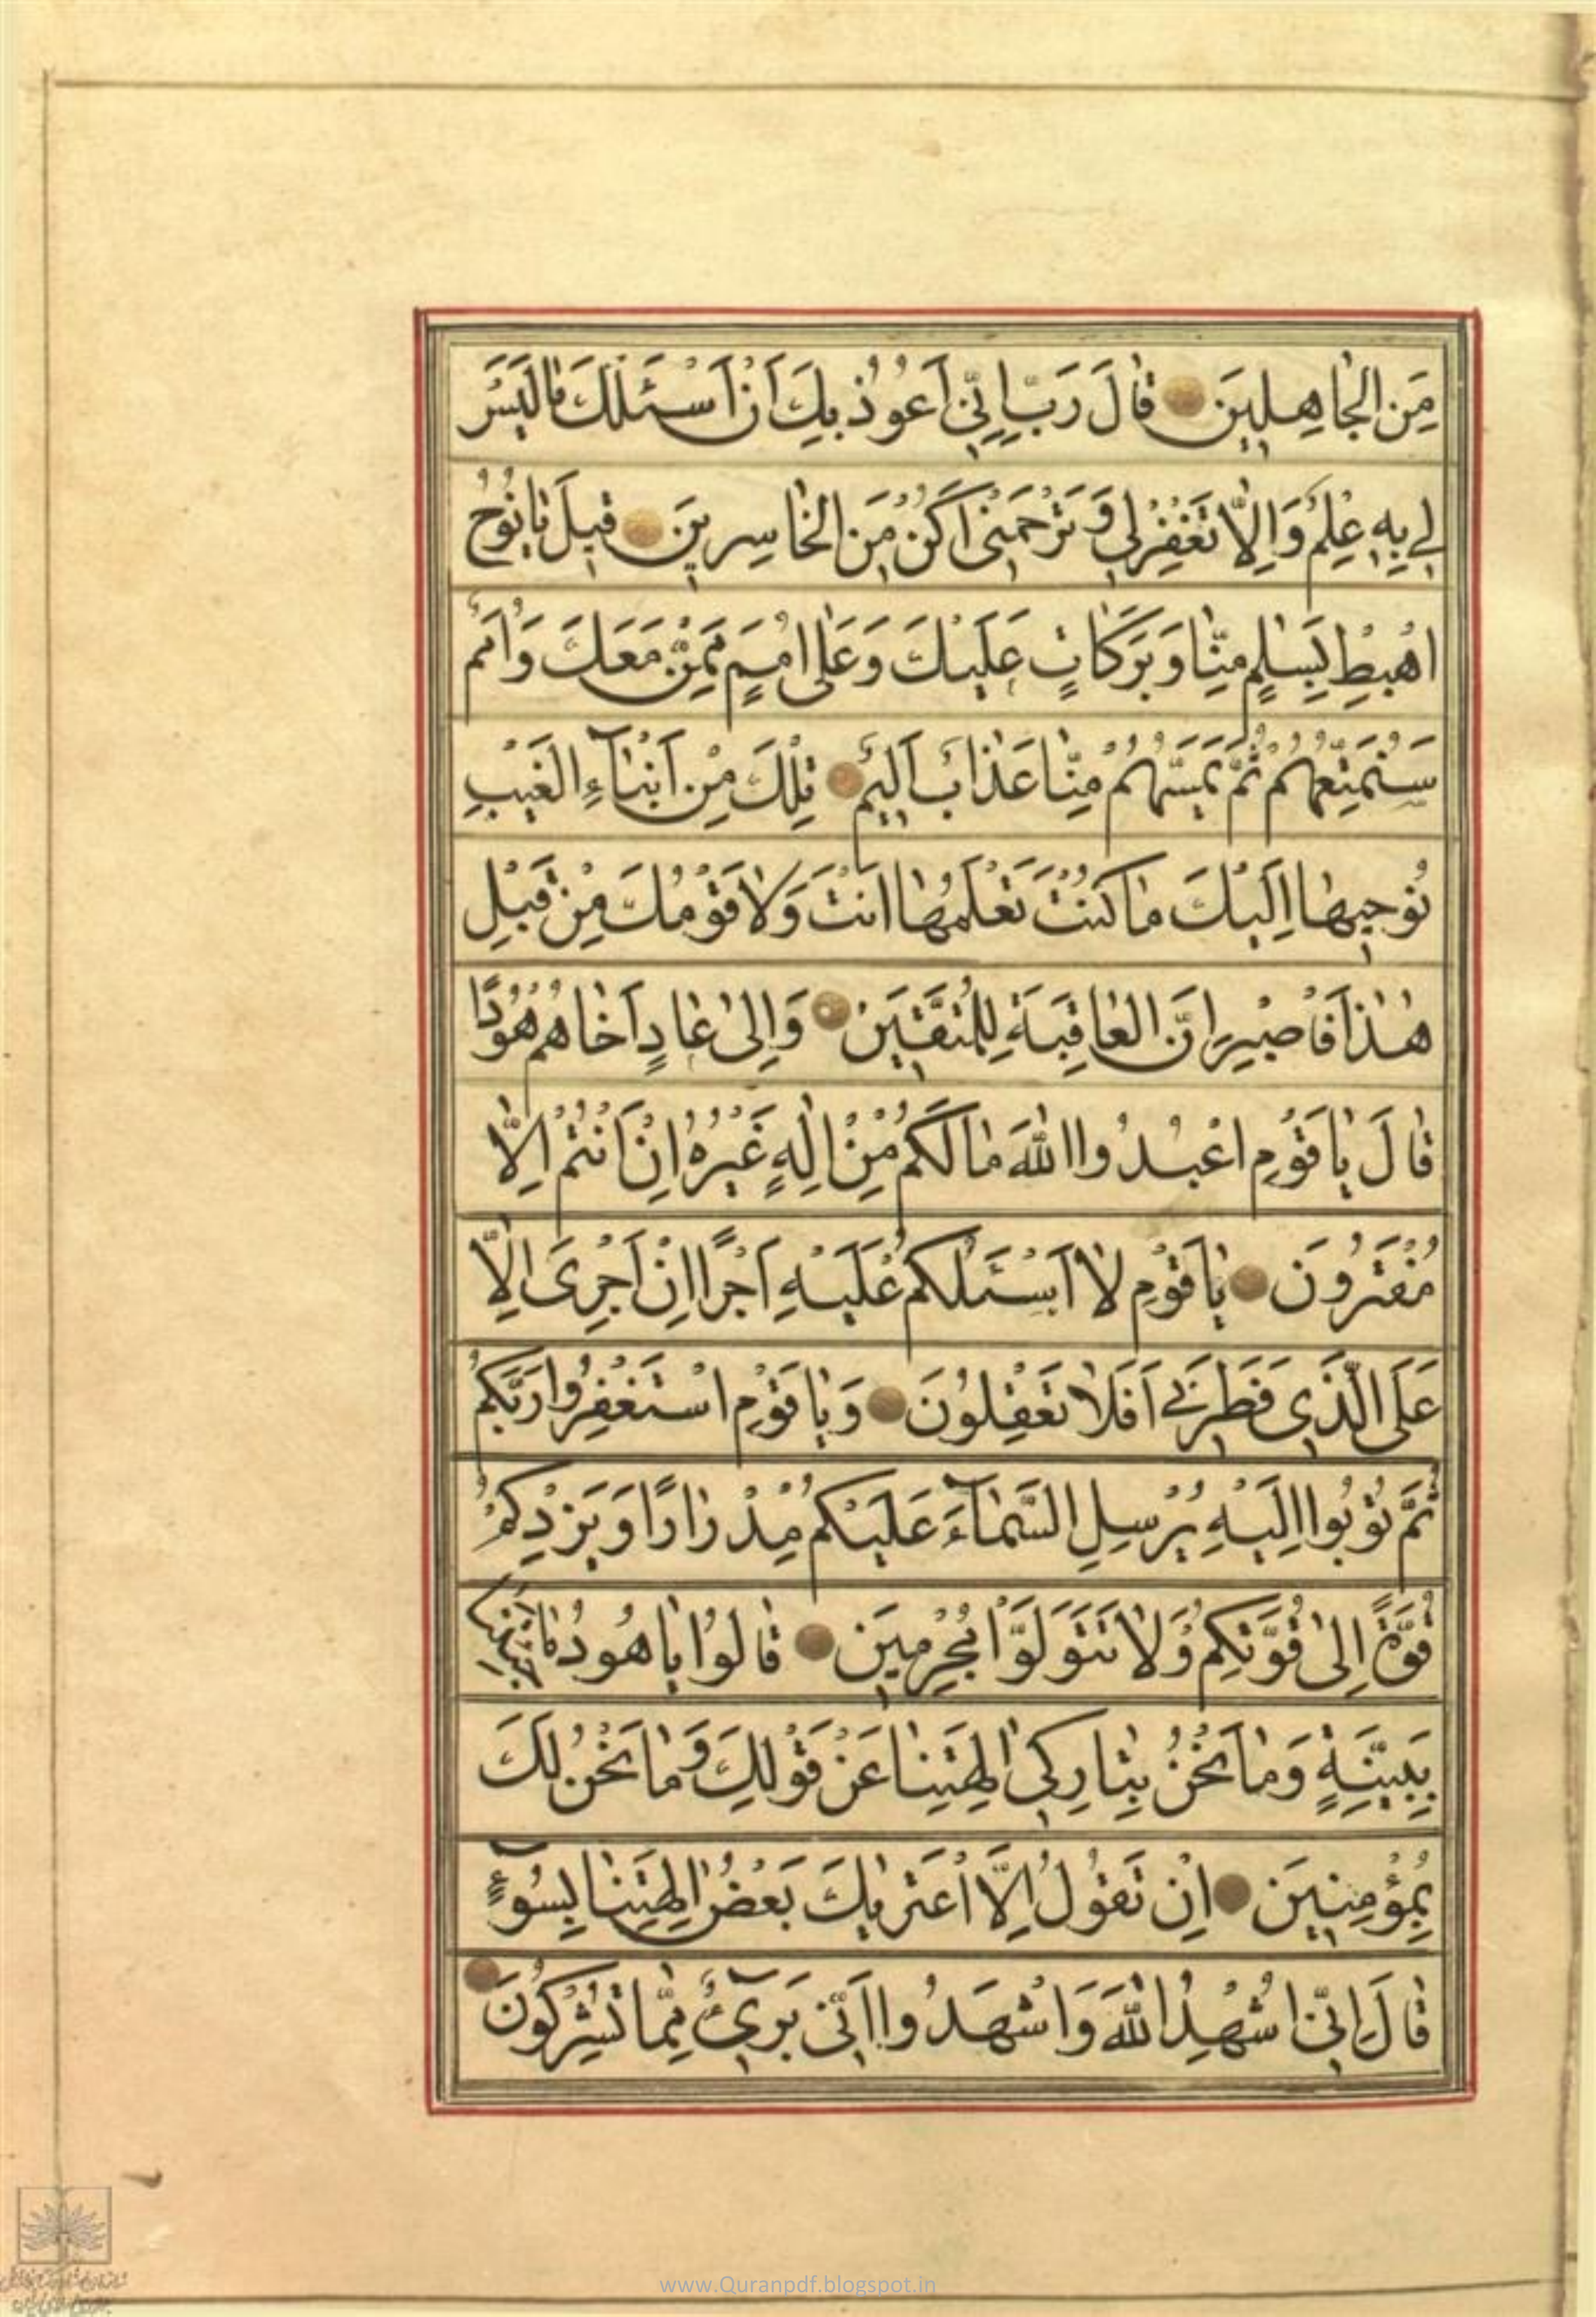 مِنَ الْجَاهِلِينَ قَالَ رَبِّ اِنِّي اَعُوذُ بِكَ اَنْ اَسْئَلَكَ مَالَيْسَ
لِي بِهِ عِلْمٌ وَاِلَّا تَغْفِرْلِي وَتَرْحَمْنِي اَكُنْ مِنَ الْخَاسِرِينَ قِيلَ يَانُوحُ
اهْبِطْ بِسَلٰمٍ مِنَّا وَبَرَكَاتٍ عَلَيْكَ وَعَلٰى اُمَمٍ مِمَّنْ مَعَكَ وَاُمَمٌ
سَنُمَتِّعُهُمْ ثُمَّ يَمَسُّهُمْ مِنَّا عَذَابٌ اَلِيمٌ تِلْكَ مِنْ اَنْبَآءِ الْغَيْبِ
نُوحِيهَا اِلَيْكَ مَاكُنْتَ تَعْلَمُهَا اَنْتَ وَلَا قَوْمُكَ مِنْ قَبْلِ
هٰذَا فَاصْبِرْ اِنَّ الْعَاقِبَةَ لِلْمُتَّقِينَ وَاِلٰى عَادٍ اَخَاهُمْ هُودًا
قَالَ يَاقَوْمِ اعْبُدُوا اللّٰهَ مَالَكُمْ مِنْ اِلٰهٍ غَيْرُهُ اِنْ اَنْتُمْ اِلَّا
مُفْتَرُونَ يَاقَوْمِ لَا اَسْئَلُكُمْ عَلَيْهِ اَجْرًا اِنْ اَجْرِىَ اِلَّا
عَلَى الَّذِى فَطَرَنِي اَفَلَا تَعْقِلُونَ وَيَاقَوْمِ اسْتَغْفِرُوا رَبَّكُمْ
ثُمَّ تُوبُوا اِلَيْهِ يُرْسِلِ السَّمَآءَ عَلَيْكُمْ مِدْرَارًا وَيَزِدْكُمْ
قُوَّةً اِلٰى قُوَّتِكُمْ وَلَا تَتَوَلَّوْا مُجْرِمِينَ قَالُوا يَاهُودُ مَاجِئْتَنَا
بِبَيِّنَةٍ وَمَا نَحْنُ بِتَارِكِى اٰلِهَتِنَا عَنْ قَوْلِكَ وَمَا نَحْنُ لَكَ
بِمُؤْمِنِينَ اِنْ نَقُولُ اِلَّا اعْتَرٰيكَ بَعْضُ اٰلِهَتِنَا بِسُوٓءٍ
قَالَ اِنِّي اُشْهِدُ اللّٰهَ وَاشْهَدُوا اَنِّي بَرِىٓءٌ مِمَّا تُشْرِكُونَ
www.Quranpdf.blogspot.in